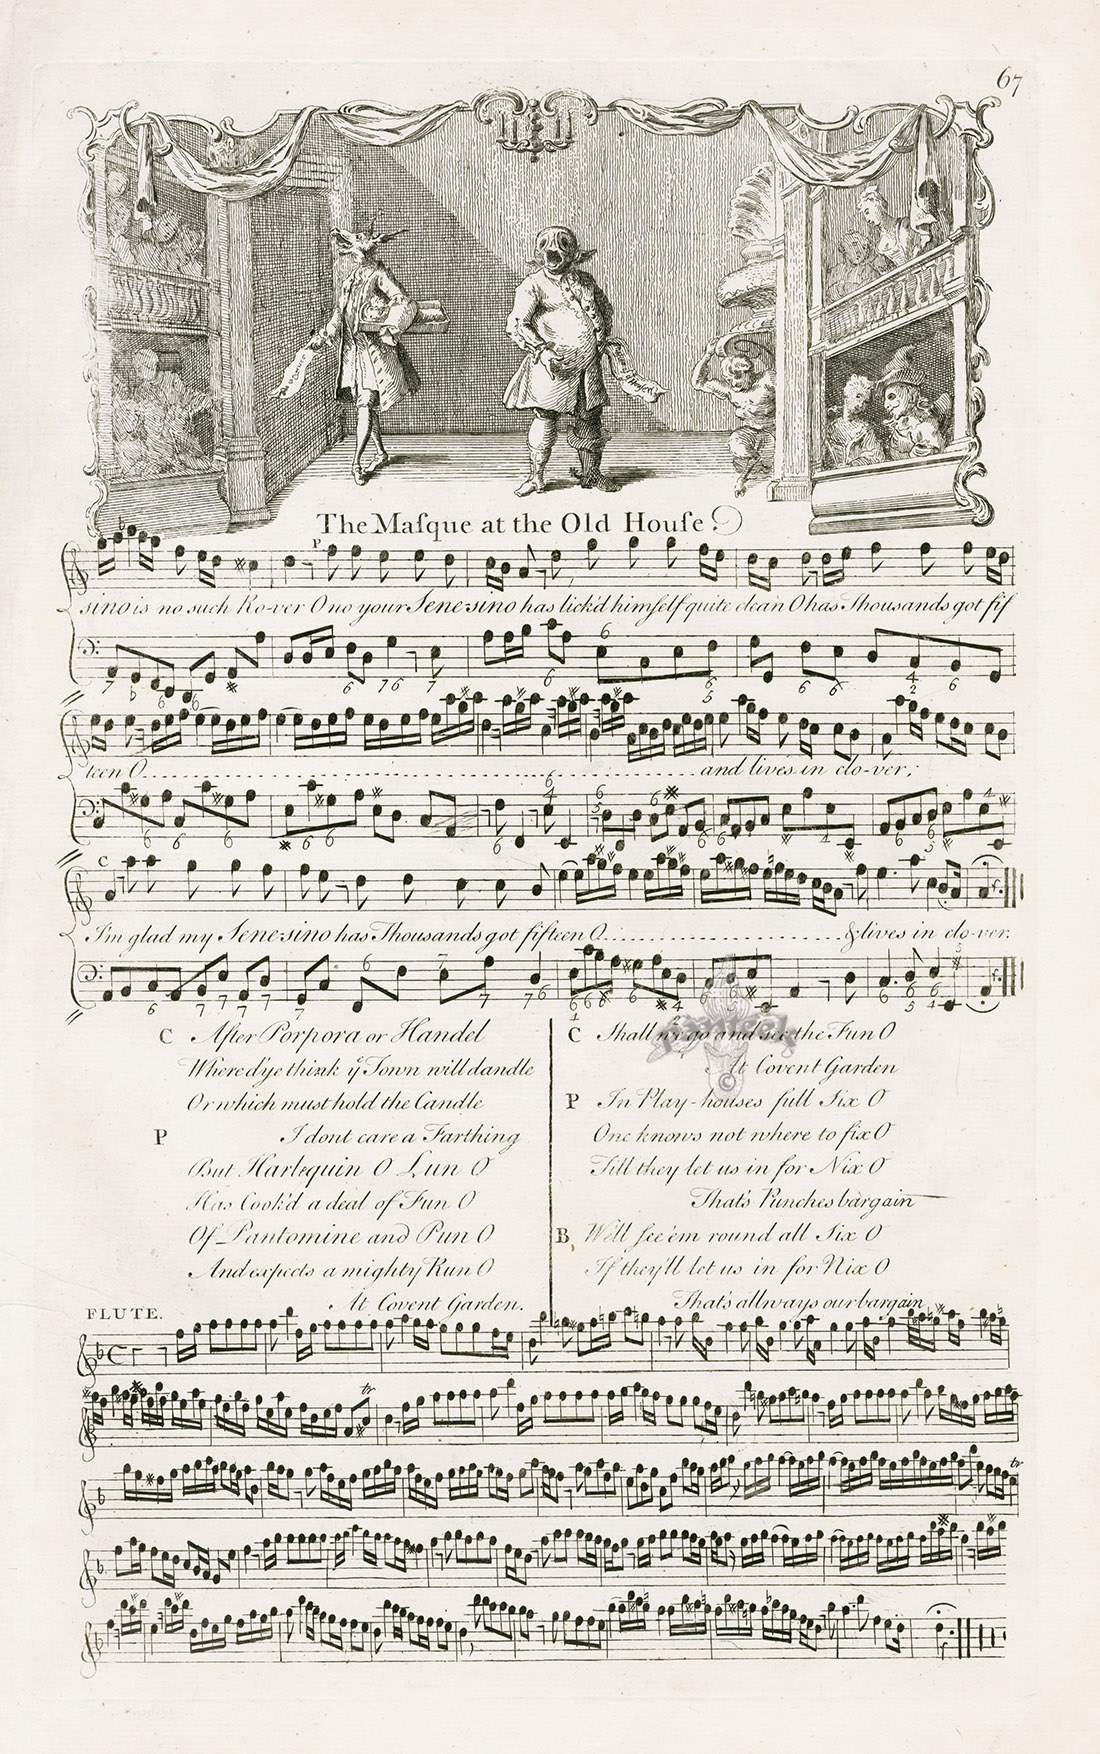 67
The Masque at the Old House.
P
sino is no such Ro-ver O no your Senesino has lick'd himself quite clean O has Thousands got fif
teen O and lives in clo-ver;
C
I'm glad my Senesino has Thousands got fifteen O & lives in clo-ver.
C After Porpora or Handel
Where d'ye think yͤ Town will dandle
Or which must hold the Candle
P I dont care a Farthing
But Harlequin O Lun O
Has Cook'd a deal of Fun O
Of Pantomine and Pun O
And expects a mighty Run O
At Covent Garden.
C Shall we go and see the Fun O
At Covent Garden
P In Play-houses full Six O
One knows not where to fix O
Till they let us in for Nix O
That's Punches bargain
B We'll see 'em round all Six O
If they'll let us in for Nix O
That's allways our bargain
FLUTE.